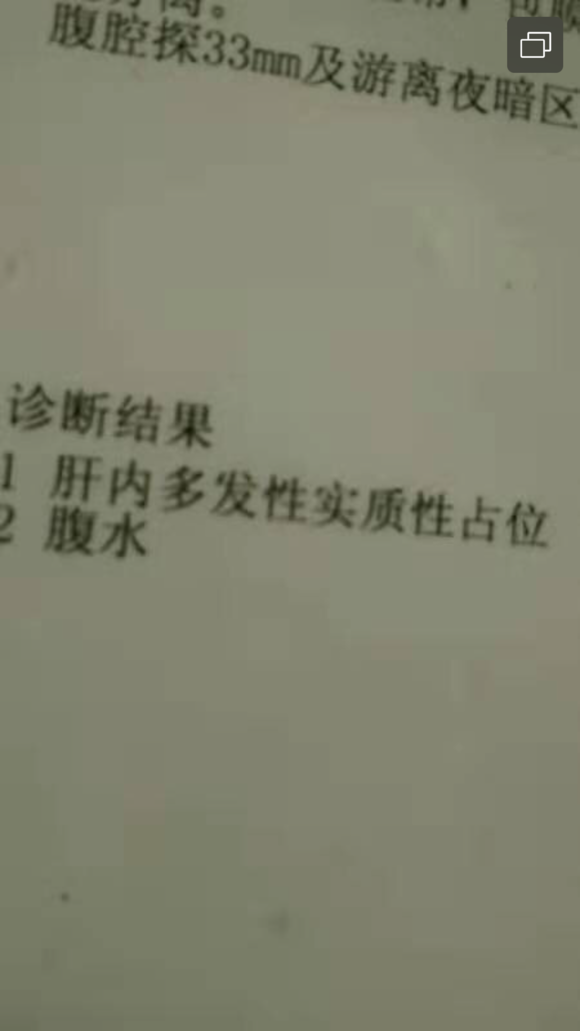 腹腔探33mm及游离夜暗区
诊断结果
1 肝内多发性实质性占位
2 腹水